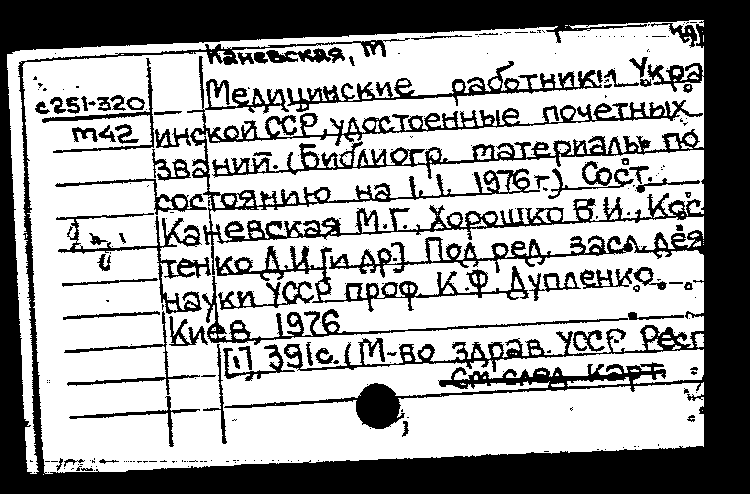 Каневская, М
с251-320
м42
Медицинские работники Укра
инской ССР, удостоенные почетных
званий. (Библиогр. материалы по
состоянию на 1. 1. 1976 г.). Сост.:
Каневская М.Г., Хорошко В.И., Кос
тенко Д.И. [и др.] Под ред. засл. дея
науки УССР проф. К.Ф. Дупленко.
Киев, 1976
[1], 391 с. (М-во здрав. УССР. Респ
См след. карт.